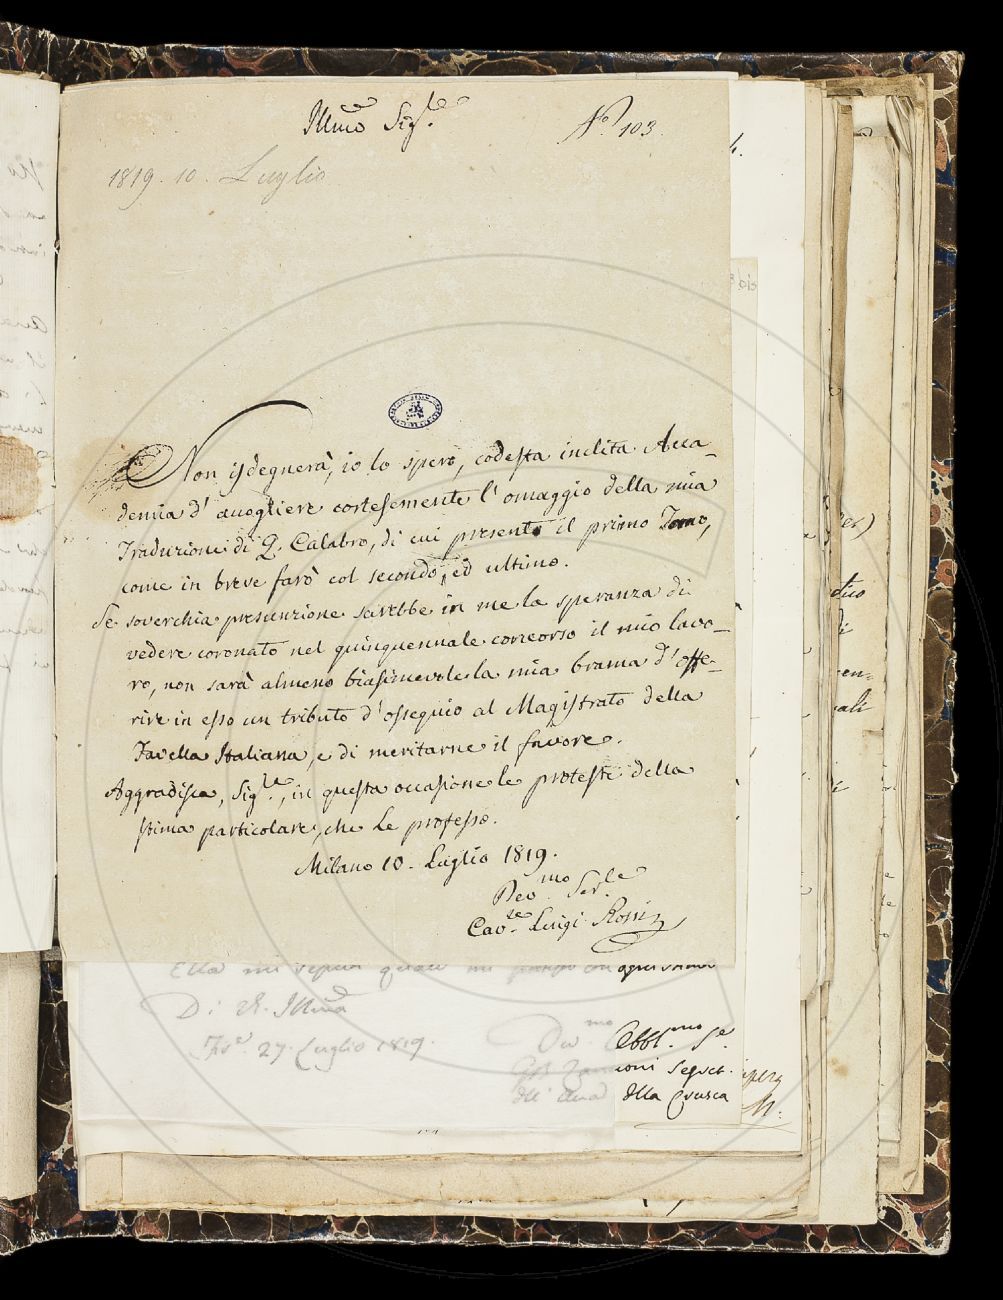 Illmo Sig.re
N.o 103.
1819. 10. Luglio
Non isdegnerà, io lo spero, codesta inclita Acca-
demia d'accogliere cortesemente l'omaggio della mia
Traduzione di Q. Calabro, di cui presento il primo Tomo,
come in breve farò col secondo, ed ultimo.
Se soverchia presunzione sarebbe in me la speranza di
vedere coronato nel quinquennale concorso il mio lavo-
ro, non sarà almeno biasimevole la mia brama d'offe-
rire in esso un tributo d'ossequio al Magistrato della
Favella Italiana, e di meritarne il favore.
Aggradisca, Sig.re, in questa occasione le proteste della
stima particolare, che Le professo.
Milano 10. Luglio 1819.
Dev.mo Ser.le
Cav.re Luigi Rossi
Ella mi
Di V. S. Illma
27. Luglio 1819.
Dev.mo Obbl.mo Se.
Segret.
della Crusca